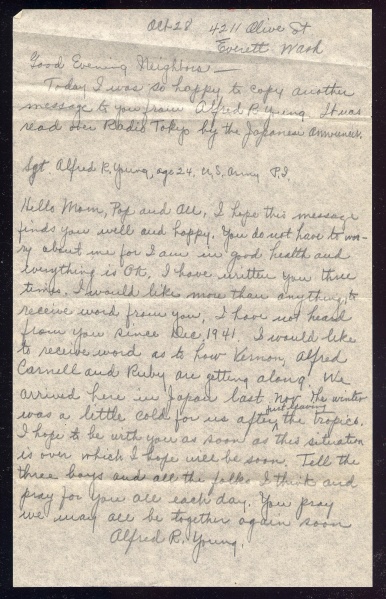 Oct-28 4211 Olive St
Everett Wash
Good Evening Neighbors—
Today I was so happy to copy another
message to you from Alfred R. Young. It was
read over Radio Tokyo by the Japanese announcer.
Sgt Alfred R. Young, age 24, U.S. Army P.I.
Hello Mom, Pop and All. I hope this message
finds you well and happy. You do not have to wor-
ry about me for I am in good health and
everything is Ok. I have written you three
times. I would like more than anything to
receive word from you. I have not heard
from you since Dec 1941. I would like
to receive word as to how Vernon, Alfred
Carnell and Ruby are getting along. We
arrived here in Japan last Nov. The winter
was a little cold for us after just leaving the tropics.
I hope to be with you as soon as this situation
is over which I hope will be soon. Tell the
three boys and all the folks I think and
pray for you all each day. You pray
we may all be together again soon
Alfred R. Young.